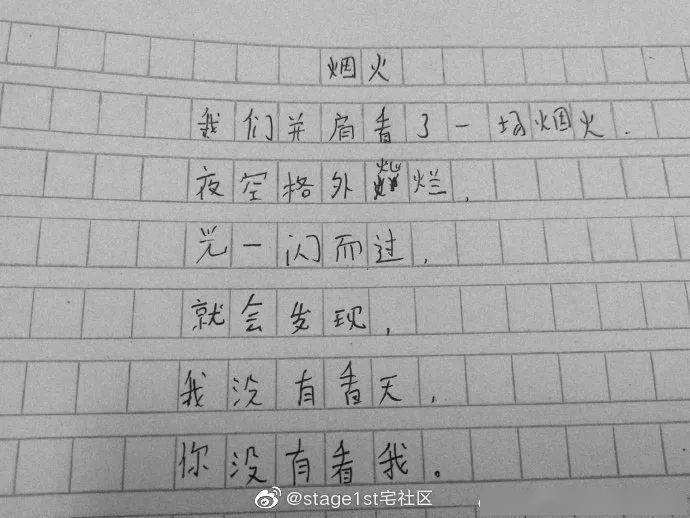 烟火
我们并肩看了一场烟火.
夜空格外灿烂,
光一闪而过,
就会发现,
我没有看天,
你没有看我。
@stage1st宅社区